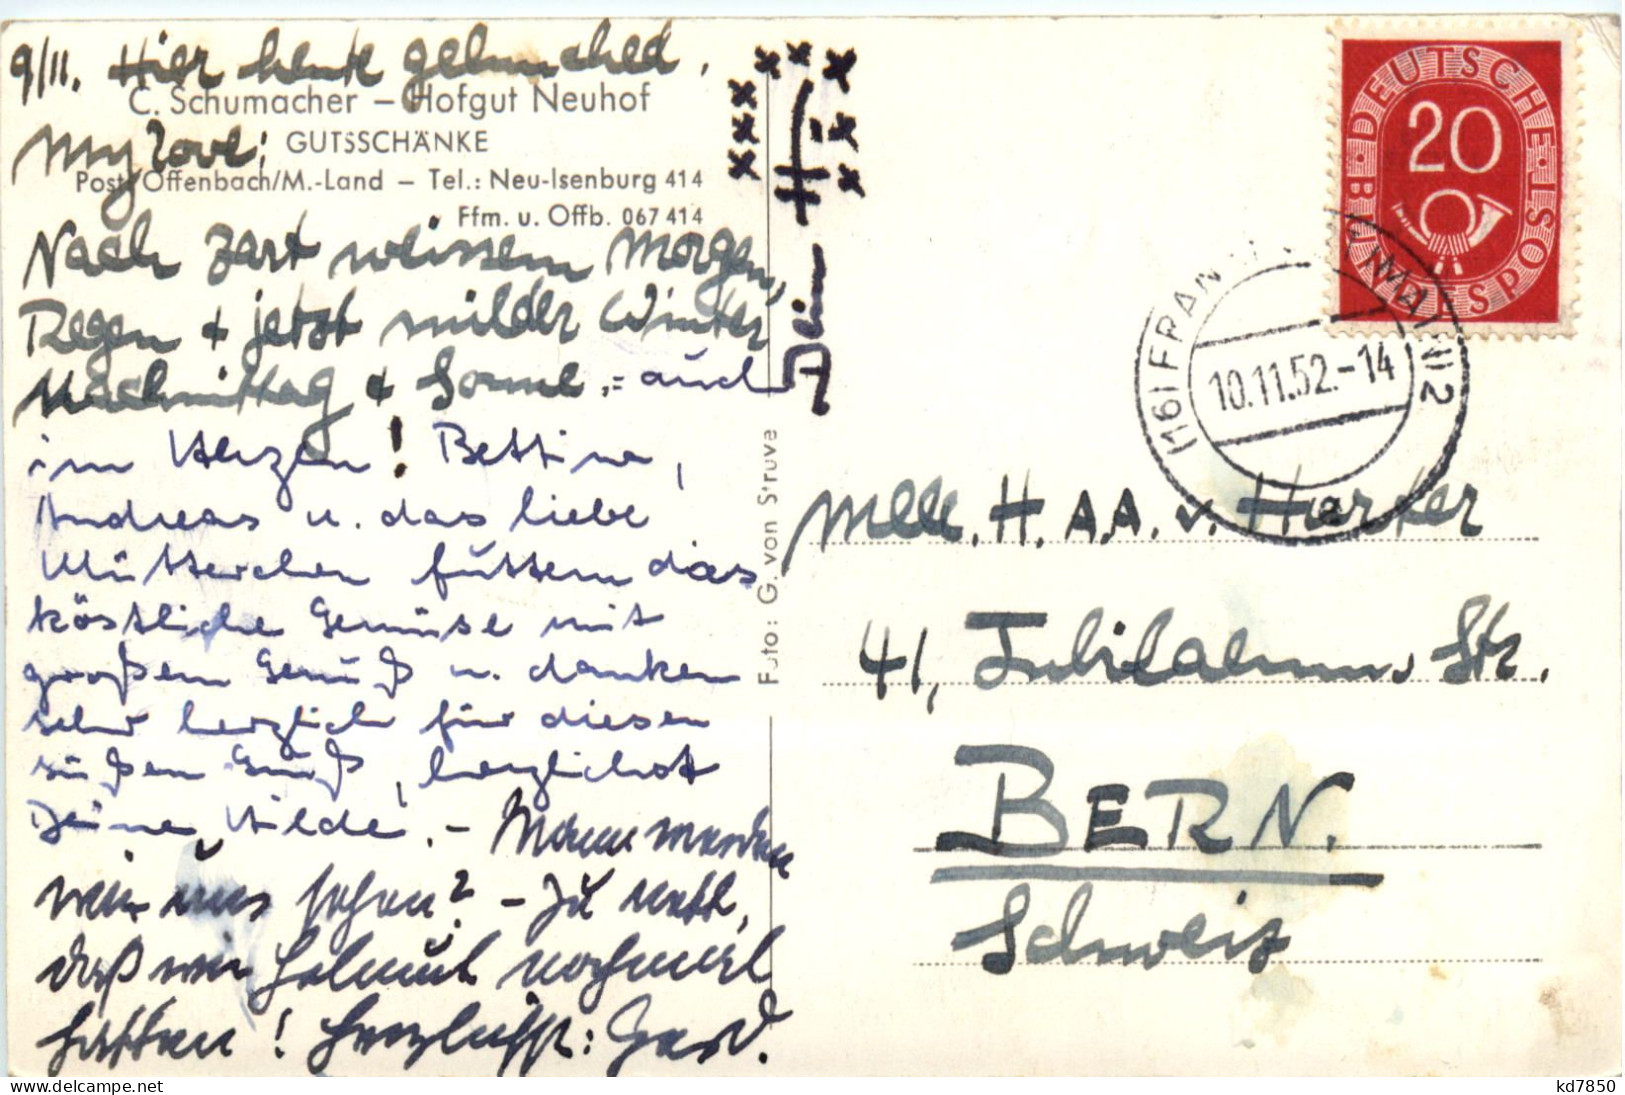 9/11. Hier heute gelunched.
C. Schumacher – Hofgut Neuhof
My Love:
GUTSSCHÄNKE
Post Offenbach/M.-Land – Tel.: Neu-Isenburg 414
Ffm. u. Offb. 067 414
Nach zart weissem Morgen,
Regen + jetzt milder Winter
Nachmittag + Sonne, = auch
im Herzen! Bettina,
Andreas u. das liebe
Mütterchen futtern das
köstliche Gemüse mit
großem Genuß u. danken
sehr herzlich für diesen
süßen Gruß, herzlichst
Deine Hilde. – Wann werden
wir uns sehen? – Zu nett,
daß wir Helmut nochmal
hatten! Herzlichst: Gerd.
xxx xxx xxx xxx
Dein H=
Foto: G. von Struve
DEUTSCHE BUNDESPOST
20
(16) FRANKFURT (MAIN) 2
10.11.52.-14
Mlle. H. A.A. v. Harker
41, Jubilaeums Str.
BERN.
Schweiz
kd7850